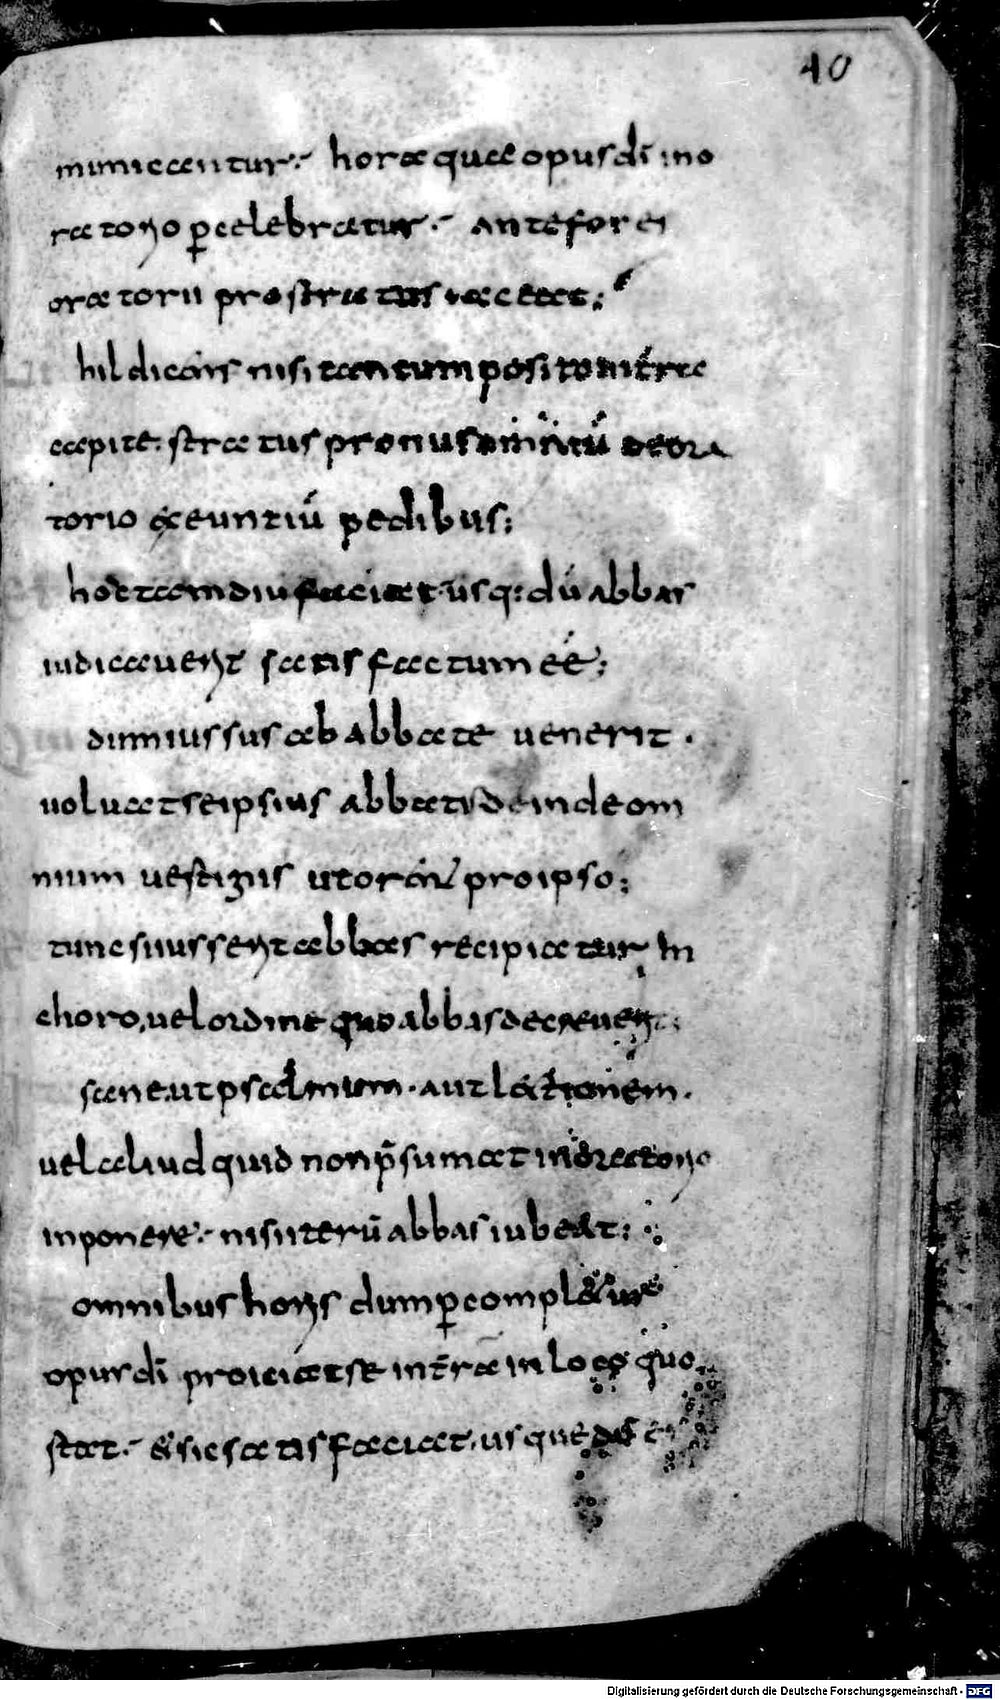 40
municantur·: hora qua opus dī ino
ratorio p̱ celebratur·: ante fores
oratorii prostratus iaceat;
hil dicens nisi tantum posito in trā
capite. stratus pronus omniū de ora
torio exeuntiū pedibus;
hoc tamdiu faciat usq: dū abbas
iudicaverit satisfactum eē;
dum iussus ab abbate venerit·
volvat se ipsius abbatis deinde om
nium vestigiis ut orent pro ipso;
tunc si iusserit abbas recipiatur in
choro, vel ordine quo abbas decreverit;
sane. ut psalmum· aut lectionem·
vel aliud quid non p̄sumat in oratorio
inponere·: nisi iterū abbas iubeat:
omnibus horis dum p̱compl&ur
opus dī proiciat se in t̄ra in loco quo
stat·: & sic satisfaciat. usque dū ei
Digitalisierung gefördert durch die Deutsche Forschungsgemeinschaft - DFG